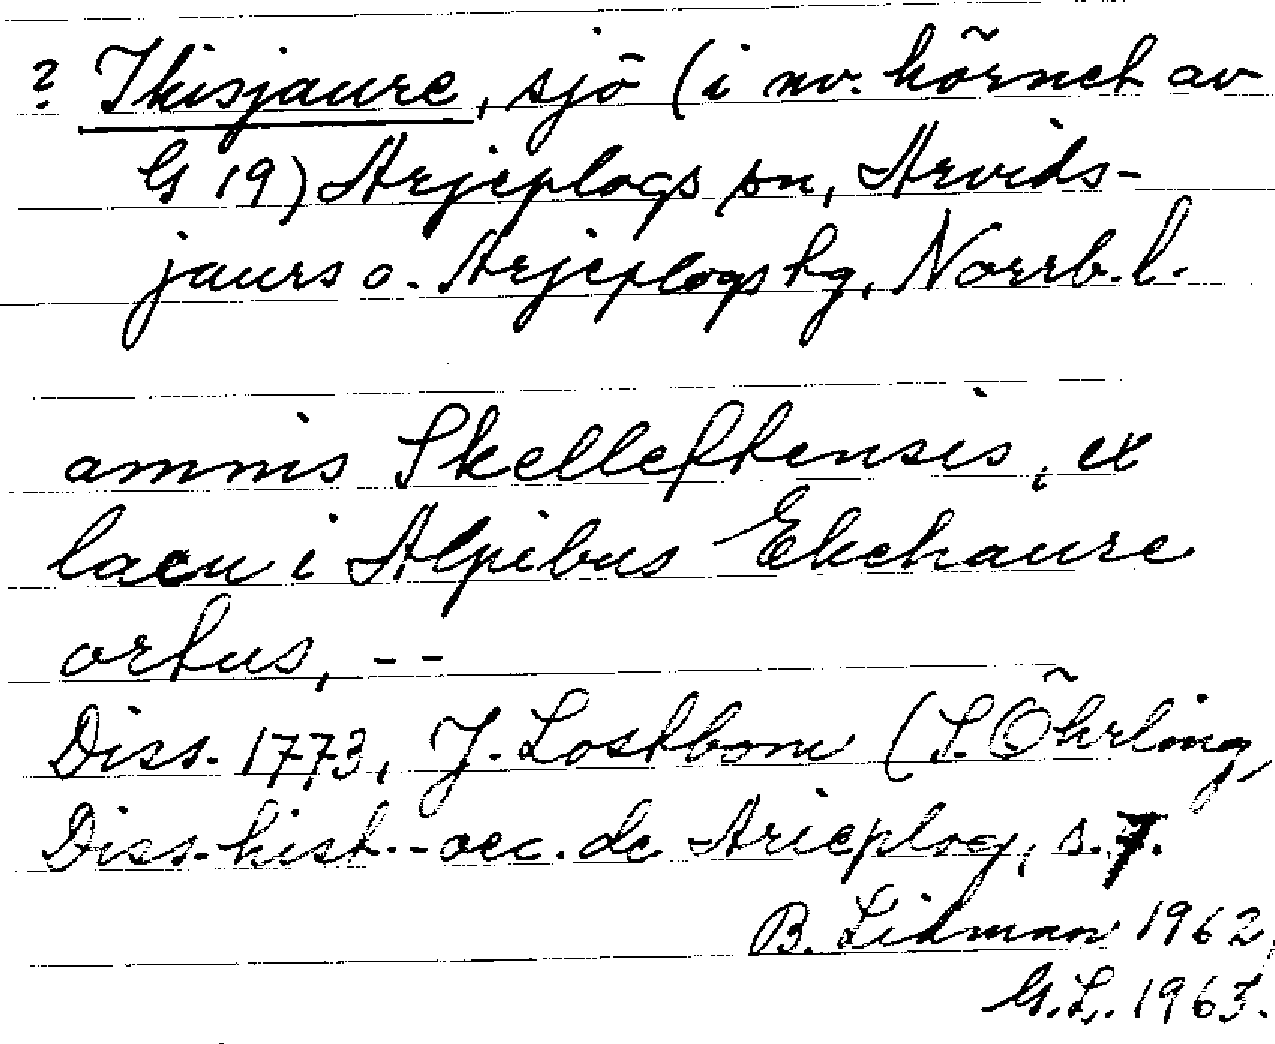 ? Ikisjaure, sjö (i nv. hörnet av
G 19) Arjeplogs sn, Arvids-
jaurs o. Arjeplogs tg, Norrb. l.
amnis Skelleftensis, ex
lacu i Alpibus Ekchaure
ortus, --
Diss. 1773, J. Lostbom (S. Öhrling,
Diss. hist.-oec. de Arieplog, s. 7.
B. Lidman 1962,
G.L. 1963.